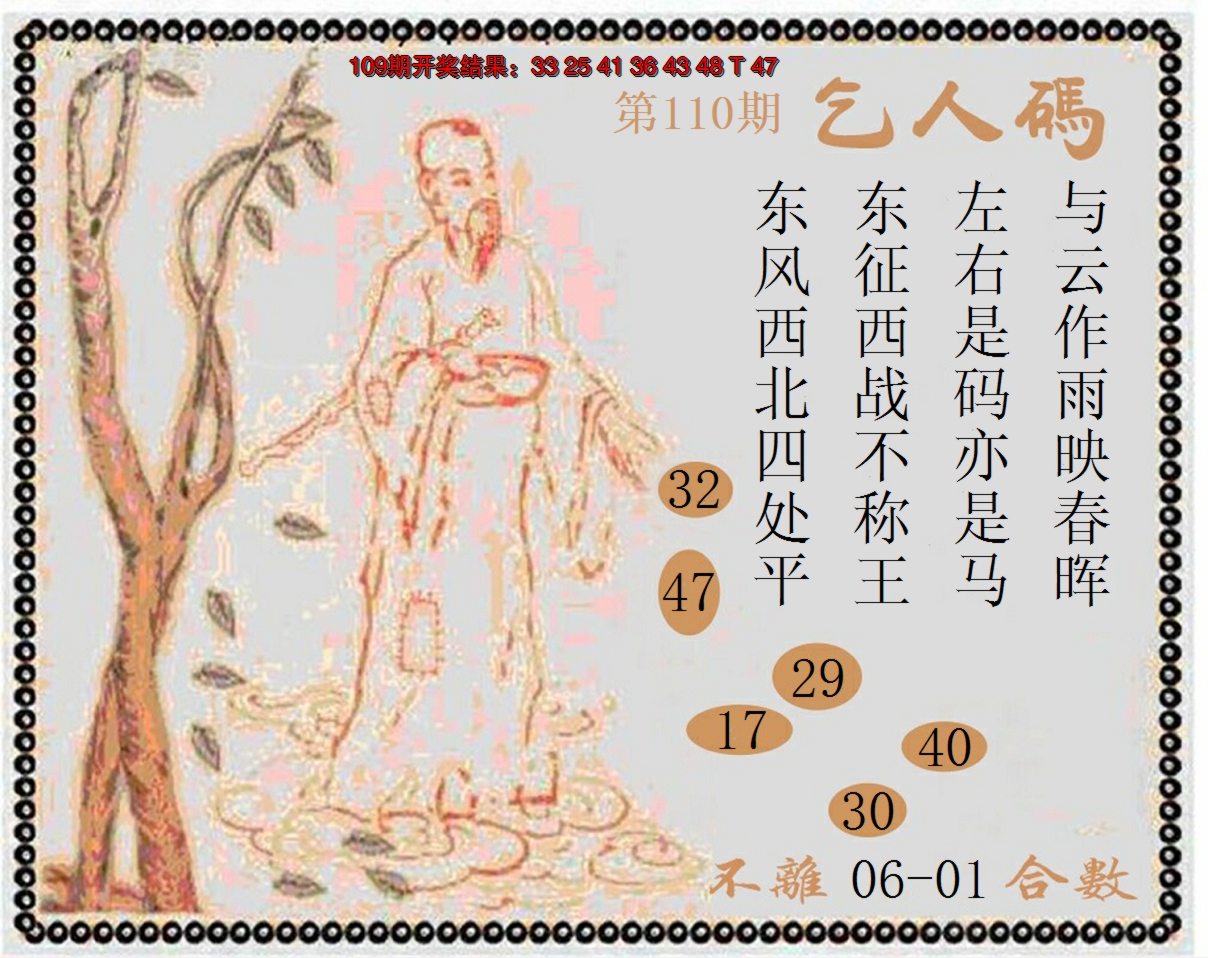 109期开奖结果：33 25 41 36 43 48 T 47
第110期 乞人碼
与云作雨映春晖
左右是码亦是马
东征西战不称王
东风西北四处平
32
47
29
17
40
30
不離 06-01 合數